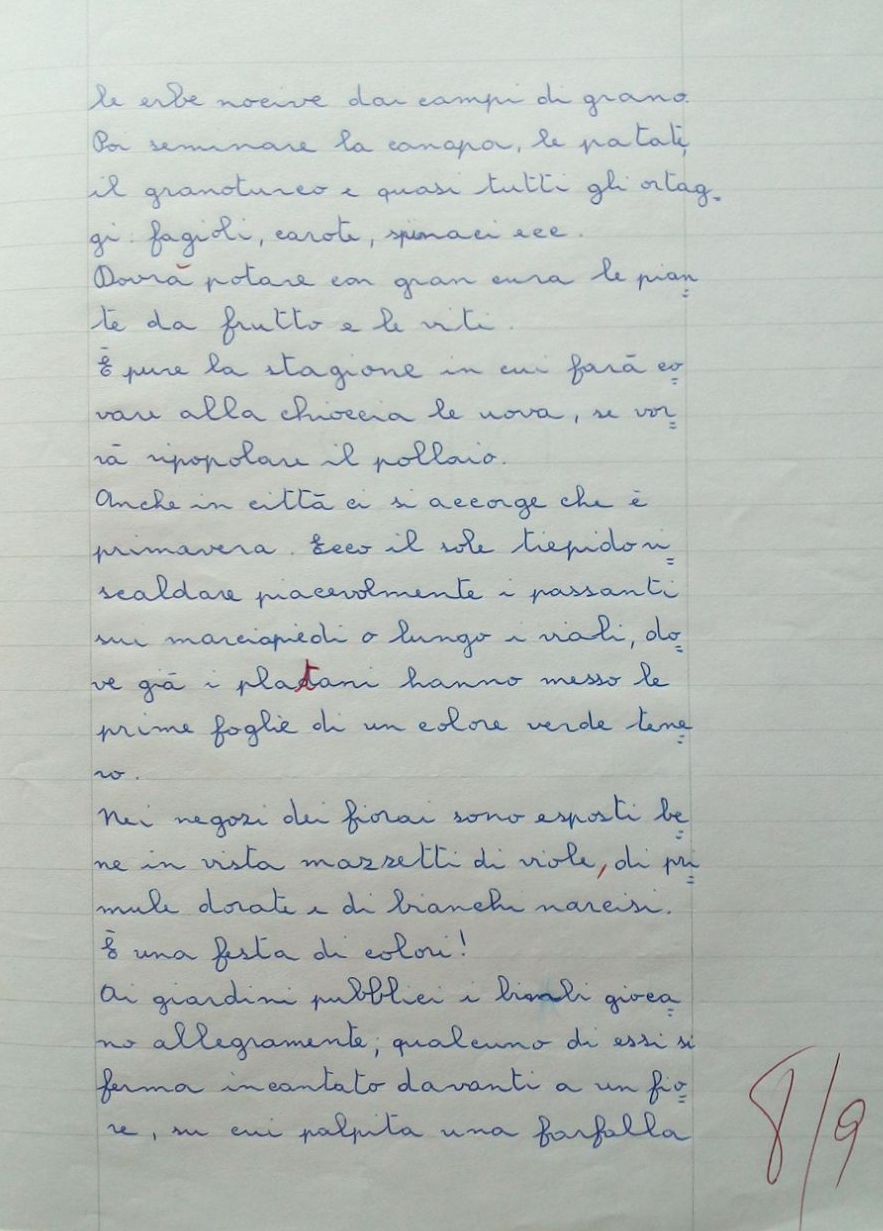 le erbe nocive dai campi di grano.
Poi seminare la canapa, le patate,
il granoturco e quasi tutti gli ortag=
gi: fagioli, carote, spinaci ecc.
Dovrà potare con gran cura le pian=
te da frutto e le viti.
È pure la stagione in cui farà co=
vare alla chioccia le uova, se vor=
rà ripopolare il pollaio.
Anche in città ci si accorge che è
primavera. Ecco il sole tiepido ri=
scaldare piacevolmente i passanti
sui marciapiedi o lungo i viali, do=
ve già i platani hanno messo le
prime foglie di un colore verde tene=
ro.
Nei negozi dei fiorai sono esposti be=
ne in vista mazzetti di viole, di pri=
mule dorate e di bianchi narcisi.
È una festa di colori!
Ai giardini pubblici i bimbi gioca=
no allegramente; qualcuno di essi si
ferma incantato davanti a un fio=
re, su cui palpita una farfalla
8/9